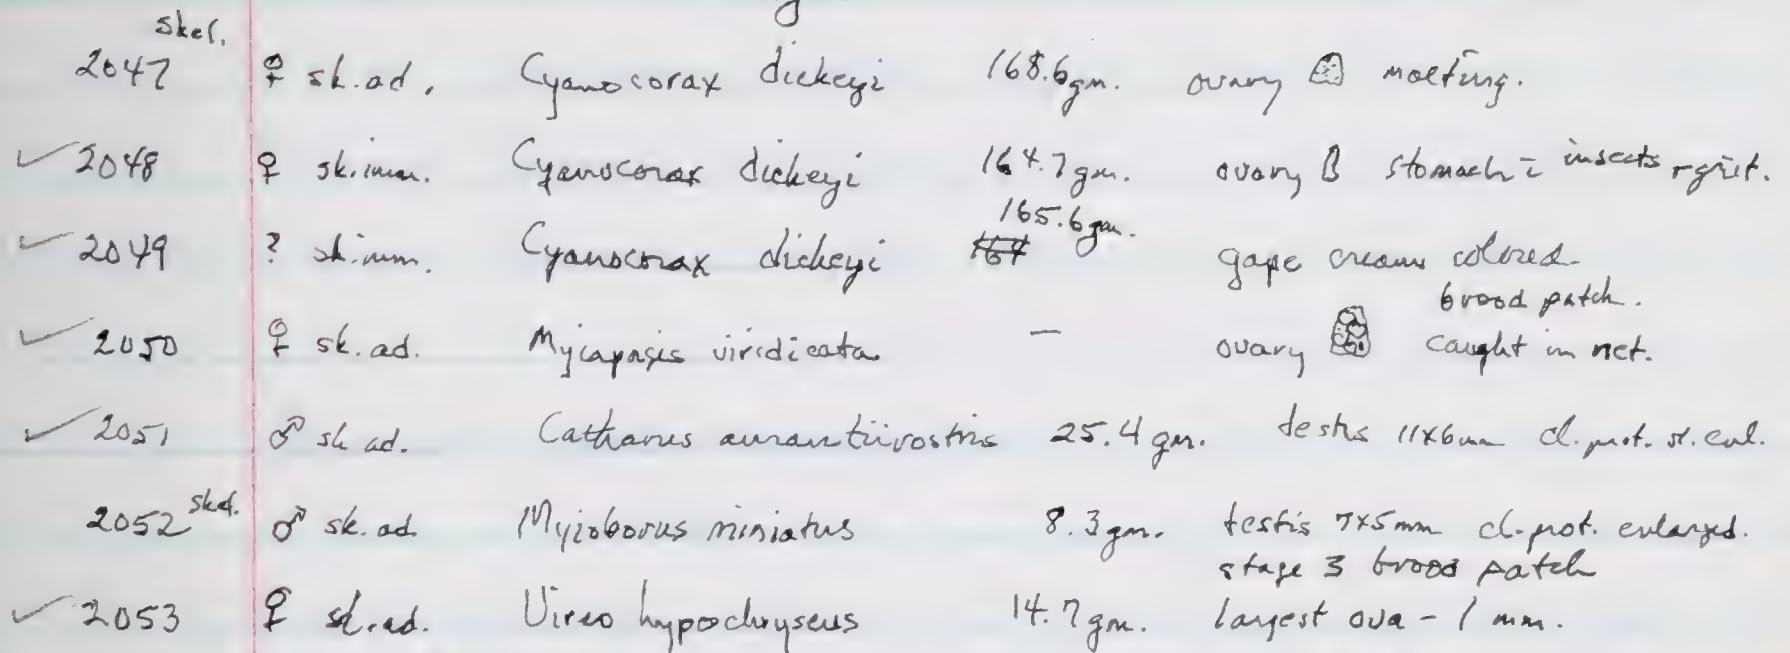 skel.
2047 ♀ sk. ad. Cyanocorax dickeyi 168.6 gm. ovary molting.
✓ 2048 ♀ sk. imm. Cyanocorax dickeyi 164.7 gm. ovary stomach c̄ insects + grit.
165.6 gm.
✓ 2049 ? sk. imm. Cyanocorax dickeyi 164 gape cream colored.
brood patch.
✓ 2050 ♀ sk. ad. Myiopagis viridicata — ovary caught in net.
✓ 2051 ♂ sk ad. Catharus aurantiirostris 25.4 gm. testis 11x6mm cl. prot. sl. enl.
2052 skel. ♂ sk. ad. Myioborus miniatus 8.3 gm. testis 7x5 mm cl. prot. enlarged.
stage 3 brood patch
✓ 2053 ♀ sk. ad. Vireo hypochryseus 14.7 gm. largest ova - 1 mm.